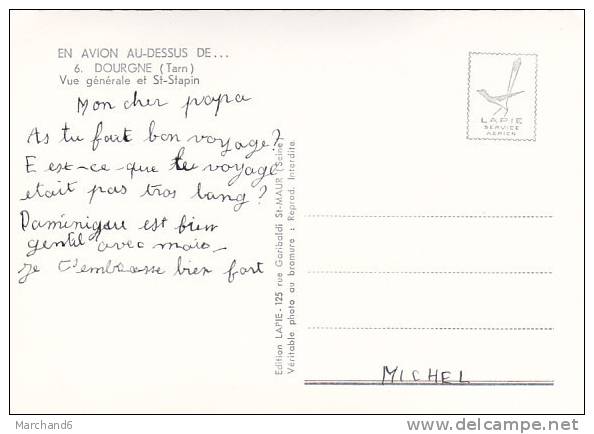 EN AVION AU-DESSUS DE...
6. DOURGNE (Tarn)
Vue générale et St-Stapin
Mon cher papa
As tu fait bon voyage?
E est-ce-que le voyage
etait pas tros lang?
Daminique est bien
gentil avec mais-
je t'embrasse bien fort
Edition LAPIE-125 rue Garibaldi St-MAUR (Seine)
Véritable photo au bromure : Reprod. Interdite.
LAPIE
SERVICE
AERIEN
MICHEL
Marchand6
www.delcampe.net